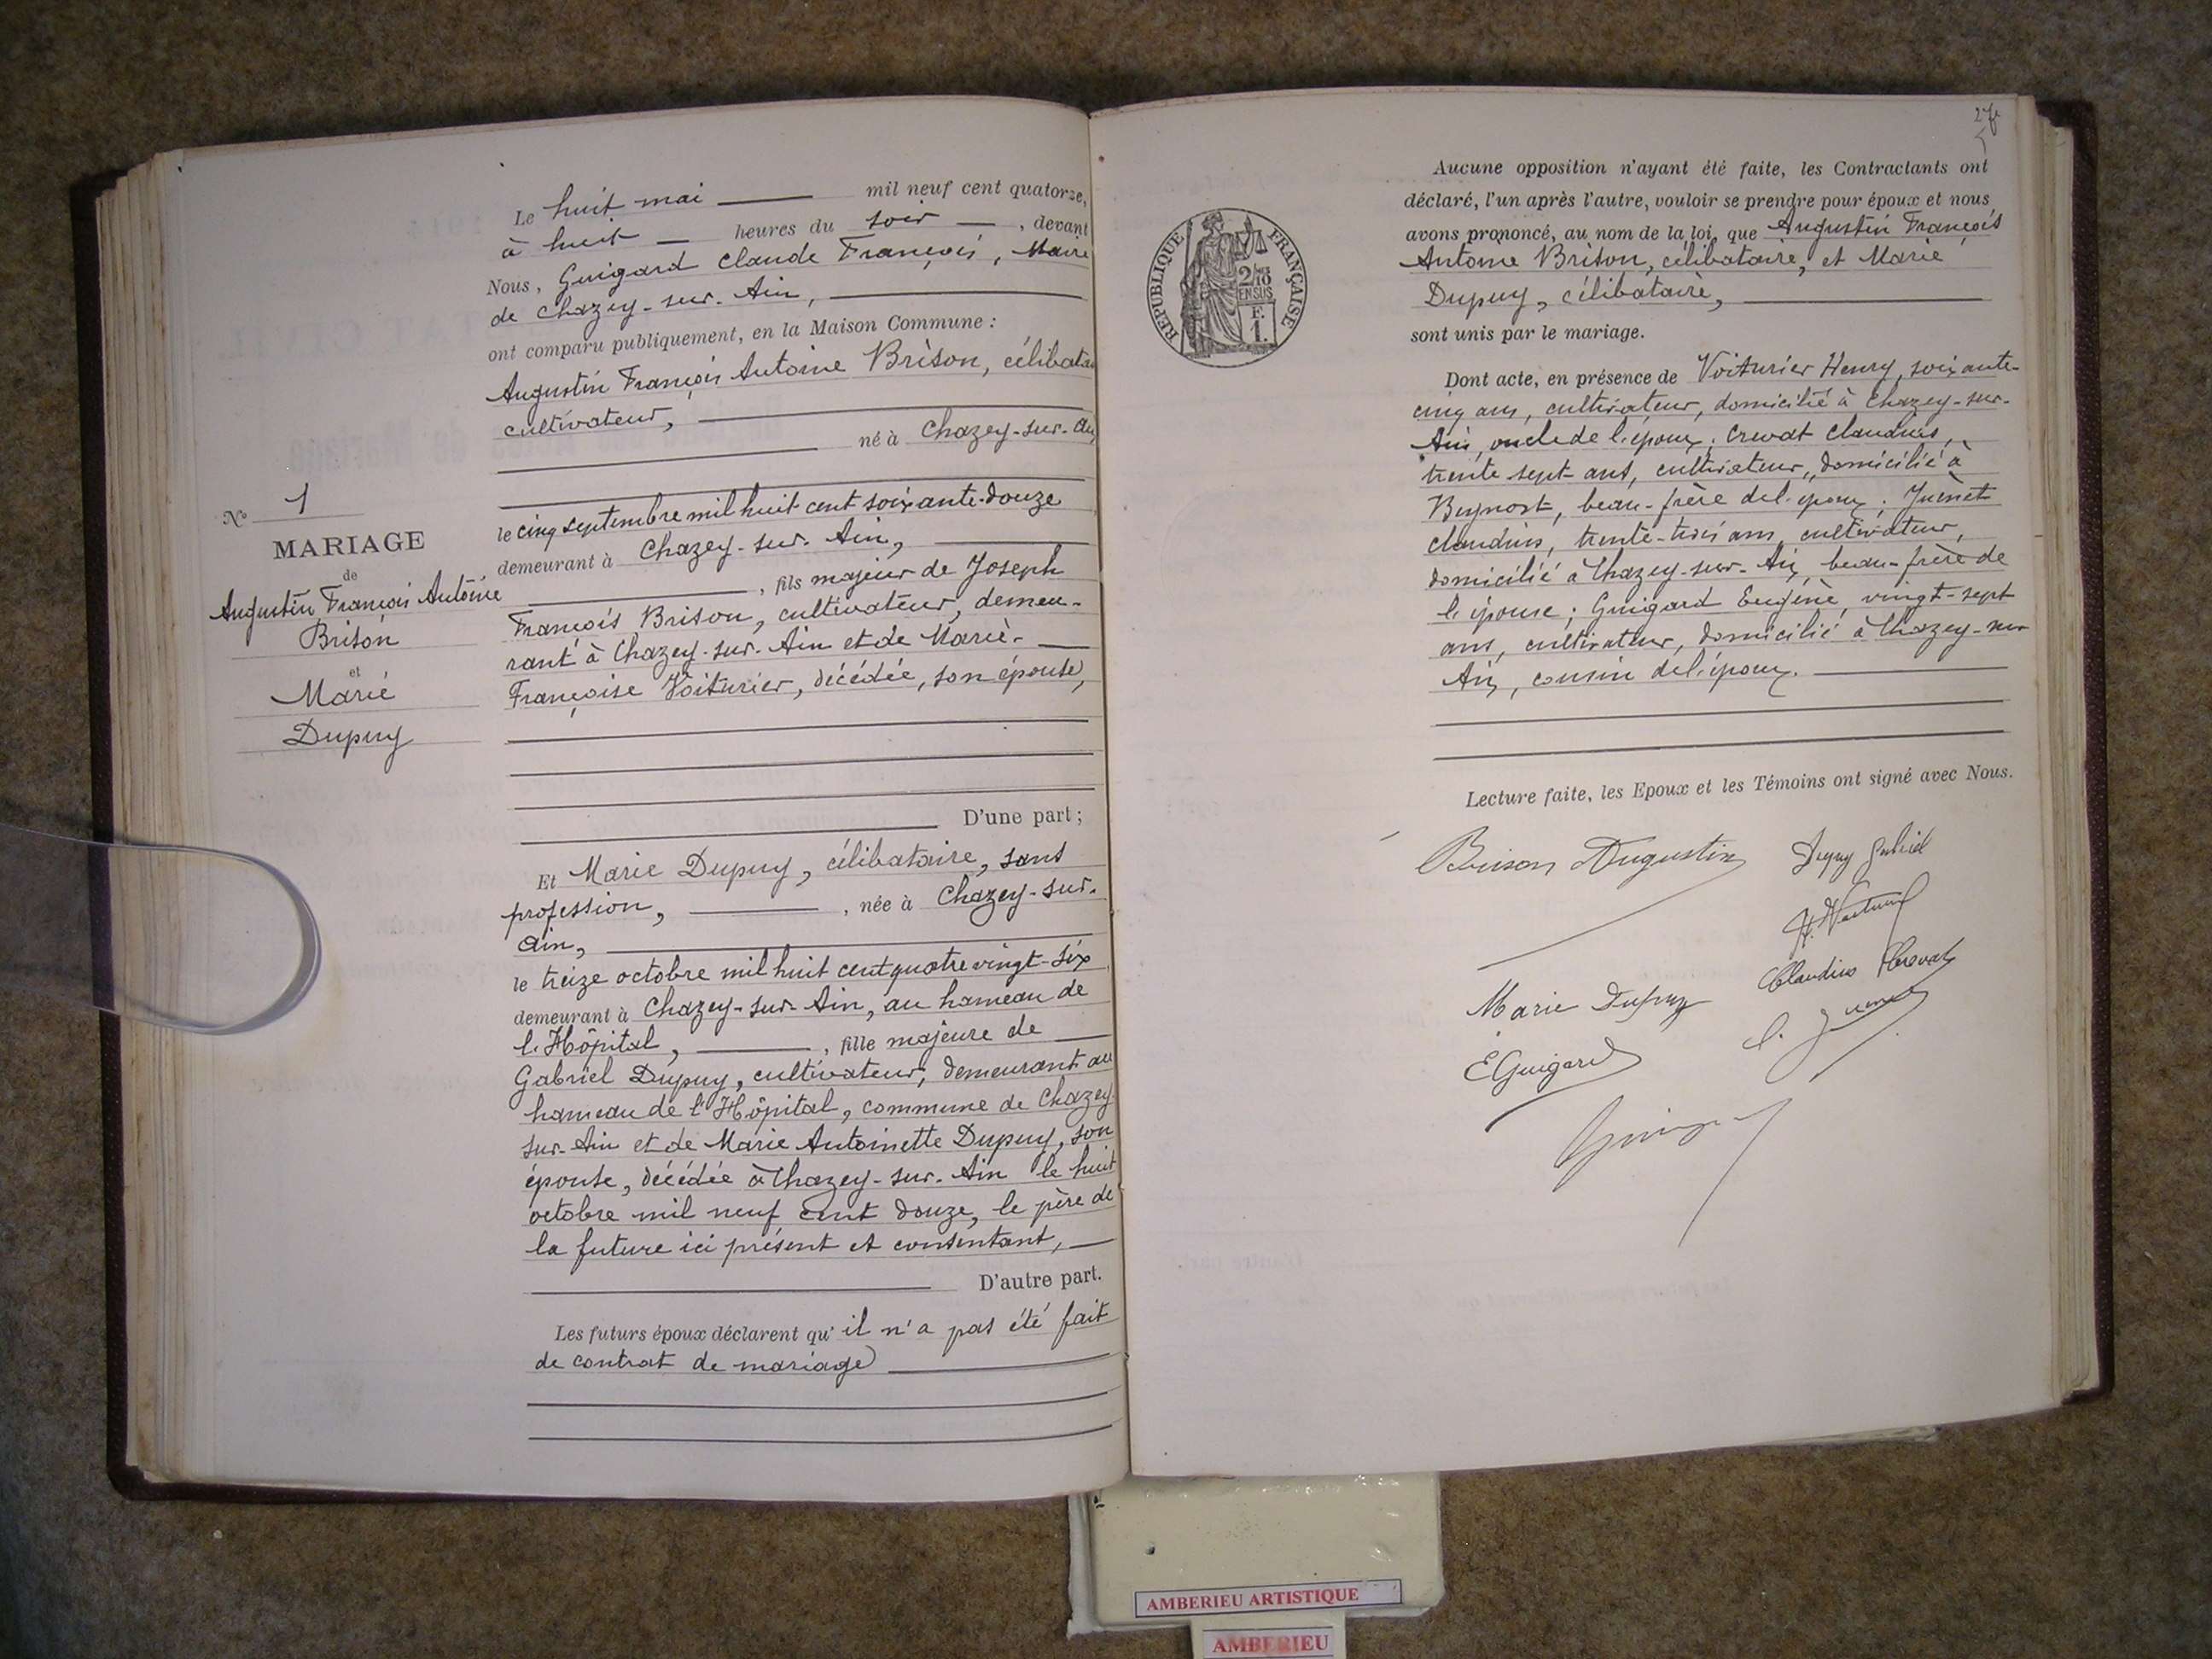 Le huit mai mil neuf cent quatorze,
à huit heures du soir, devant
Nous, Guigard Claude François, Maire
de Chazey-sur-Ain,
ont comparu publiquement, en la Maison Commune :
Augustin François Antoine Brison, célibatai
cultivateur,
né à Chazey-sur-Ain
le cinq septembre mil huit cent soixante-douze
demeurant à Chazey-sur-Ain,
, fils majeur de Joseph
François Brison, cultivateur, demeu-
rant à Chazey-sur-Ain et de Marie-
Françoise Voiturier, décédée, son épouse,
D'une part ;
Et Marie Dupuy, célibataire, sans
profession, , née à Chazey-sur-
Ain,
le treize octobre mil huit cent quatre vingt-six
demeurant à Chazey-sur-Ain, au hameau de
l'Hôpital, , fille majeure de
Gabriel Dupuy, cultivateur, demeurant au
hameau de l'Hôpital, commune de Chazey-
sur-Ain et de Marie Antoinette Dupuy, son
épouse, décédée à Chazey-sur-Ain le huit
octobre mil neuf cent douze, le père de
la future ici présent et consentant,
D'autre part.
Les futurs époux déclarent qu'il n'a pas été fait
de contrat de mariage
N° 1
MARIAGE
de
Augustin François Antoine
Brison
et
Marie
Dupuy
REPUBLIQUE FRANÇAISE
2/10
EN SUS
F.
1.
Aucune opposition n'ayant été faite, les Contractants ont
déclaré, l'un après l'autre, vouloir se prendre pour époux et nous
avons prononcé, au nom de la loi, que Augustin François
Antoine Brison, célibataire, et Marie
Dupuy, célibataire,
sont unis par le mariage.
Dont acte, en présence de Voiturier Henry, soixante-
cinq ans, cultivateur, domicilié à Chazey-sur-
Ain, oncle de l'époux ; Crevat Claudius,
trente sept ans, cultivateur, domicilié à
Beynost, beau-frère de l'époux ; Juenet
Claudius, trente-trois ans, cultivateur,
domicilié à Chazey-sur-Ain, beau-frère de
l'épouse ; Guigard Eugène, vingt-sept
ans, cultivateur, domicilié à Chazey-sur
Ain, cousin de l'époux.
Lecture faite, les Epoux et les Témoins ont signé avec Nous.
Brison Augustin
Dupuy Gabriel
Marie Dupuy
Claudius Crevat
E Guigard
AMBERIEU ARTISTIQUE
AMBERIEU